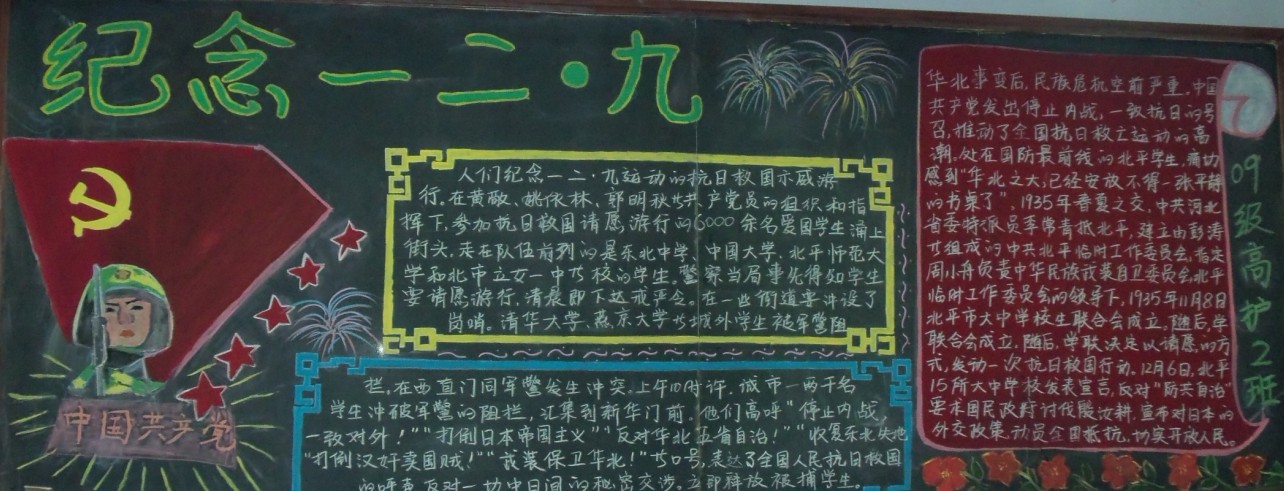 纪念一二·九
人们纪念一二·九运动的抗日救国示威游
行。在黄敬、姚依林、郭明秋等共产党员的组织和指
挥下，参加抗日救国请愿游行的6000余名爱国学生涌上
街头。走在队伍前列的是东北中学、中国大学、北平师范大
学和北市立女一中等校的学生。警察当局事先得知学生
要请愿游行，清晨即下达戒严令。在一些街道要冲设了
岗哨。清华大学、燕京大学等城外学生被军警阻
拦，在西直门同军警发生冲突。上午10时许，城市一两千名
学生冲破军警的阻拦，汇集到新华门前，他们高呼"停止内战，
一致对外！""打倒日本帝国主义""反对华北五省自治！""收复东北失地
"打倒汉奸卖国贼！""武装保卫华北！"等口号，表达了全国人民抗日救国
的呼声，反对一切中日间的秘密交涉。立即释放被捕学生。
中国共产党
华北事变后，民族危机空前严重。中国
共产党发出停止内战，一致抗日的号
召，推动了全国抗日救亡运动的高
潮。处在国防最前线的北平学生，痛切
感到"华北之大，已经安放不得一张平静
的书桌了"。1935年春夏之交，中共河北
省委特派员李常青抵北平，建立由彭涛
等组成的中共北平临时工作委员会，指定
周小舟负责中华民族武装自卫委员会北平
临时工作委员会的领导下，1935年11月8日
北平市大中学校生联合会成立。随后，学
联合会成立。随后，学联决定以请愿的方
式，发动一次抗日救国行动。12月6日，北平
15所大中学校发表宣言，反对"防共自治"
要求国民政府讨伐殷汝耕，宣布对日本的
外交政策，动员全国抵抗，切实开放人民。
09级高护2班